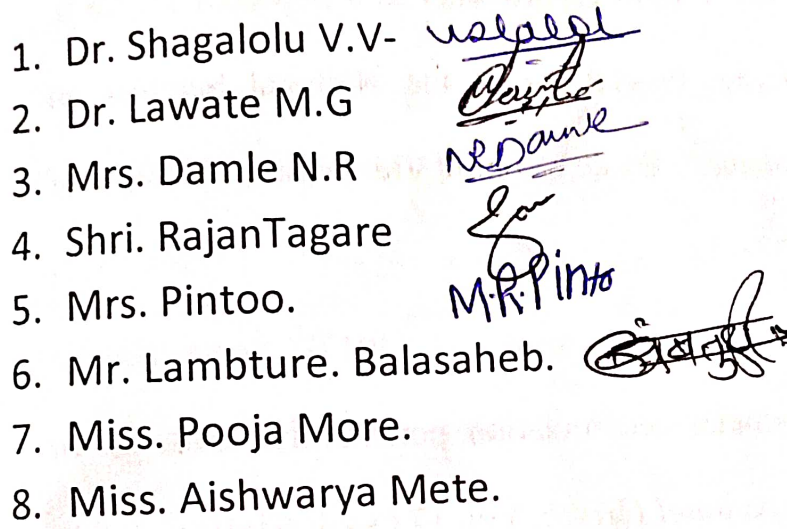 1. Dr. Shagalolu V.V-
2. Dr. Lawate M.G
3. Mrs. Damle N.R
4. Shri. RajanTagare
5. Mrs. Pintoo. M.R.Pinto
6. Mr. Lambture. Balasaheb.
7. Miss. Pooja More.
8. Miss. Aishwarya Mete.